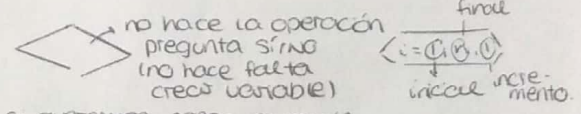 final
no hace la operación
pregunta sí/no
(no hace falta
crear variable)
i=①, ⓝ, ①
inicial incre-
mento.